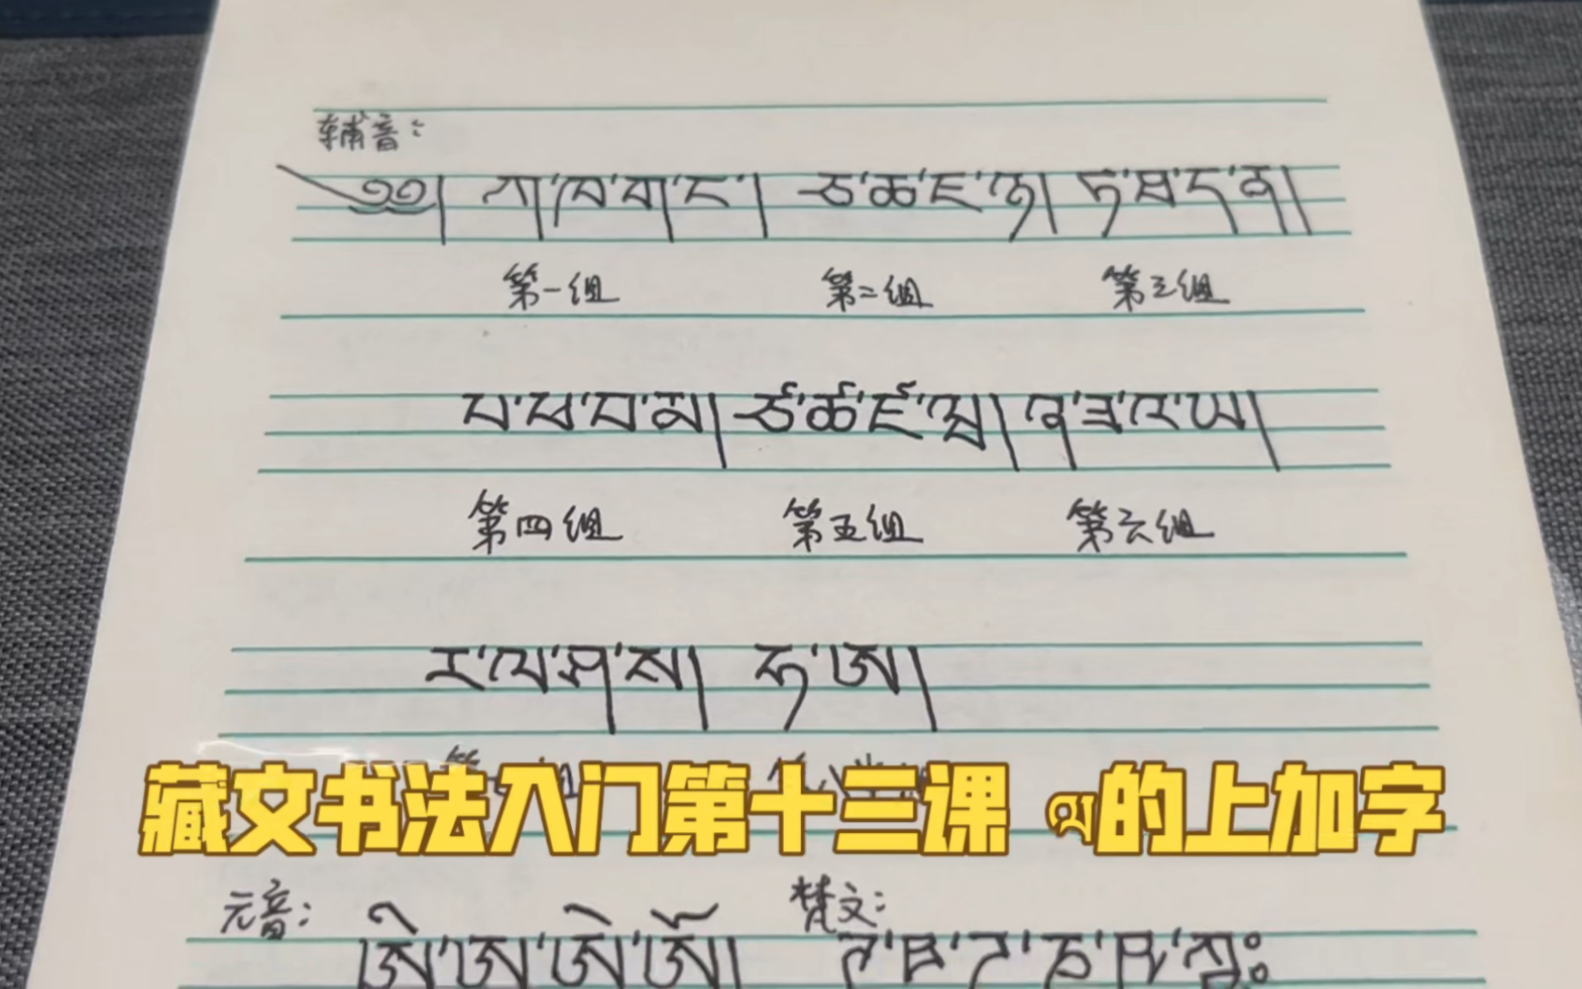 辅音：
༄༅། ཀ།ཁ་ག།ང་། ཅ་ཆ་ཇ་ཉ། ཏ་ཐ་ད་ན།
第一组 第二组 第三组
པ་ཕ་བ་མ། ཙ་ཚ་ཛ་ཝ། ཞ་ཟ་འ་ཡ།
第四组 第五组 第六组
ར་ལ་ཤ་ས། ཧ་ཨ།
藏文书法入门第十三课 ལ的上加字
元音： 梵文：
ཨི་ཨུ་ཨེ་ཨོ། ཊ་ཋ་ཌ་ཎ་ཥ་ཀྵཿ